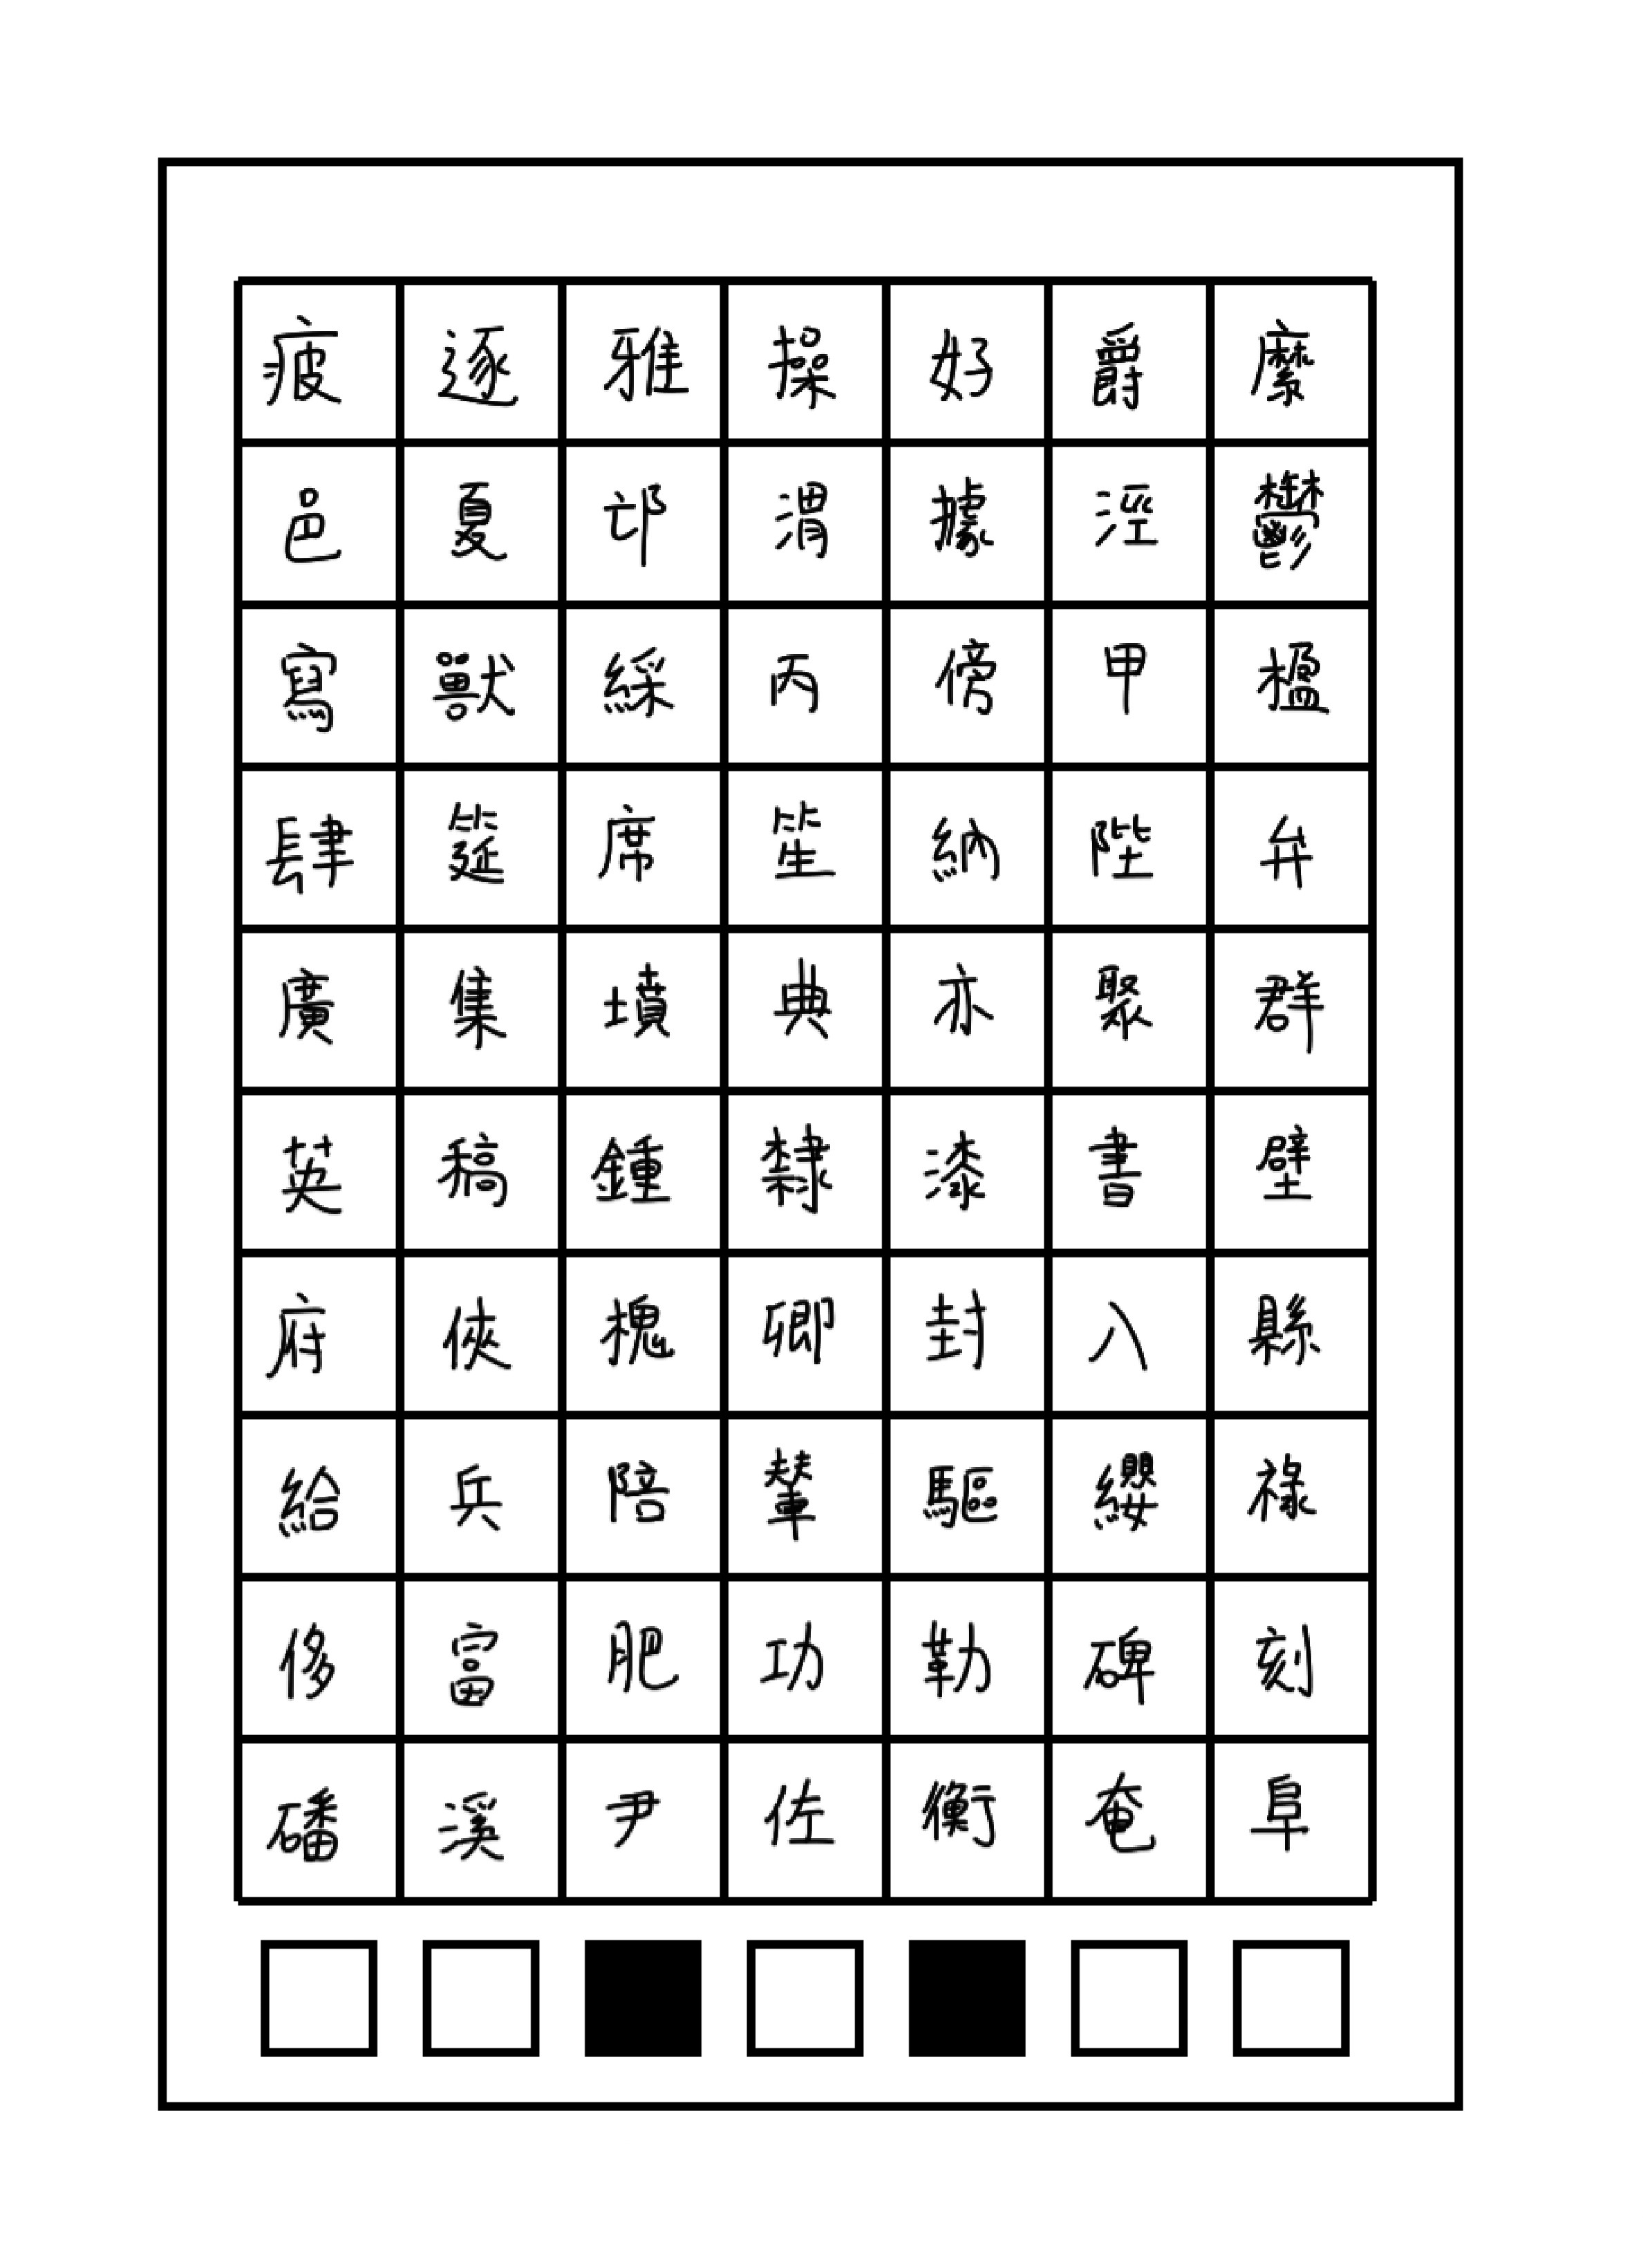 疲逐雅操好爵縻
邑夏邙渭據涇鬱
寫獸綵丙傍甲楹
肆筵席笙納陛弁
廣集墳典亦聚群
英稿鍾隷漆書壁
府俠槐卿封八縣
給兵陪輦驅纓祿
侈富肥功勒碑刻
磻溪尹佐衡奄阜